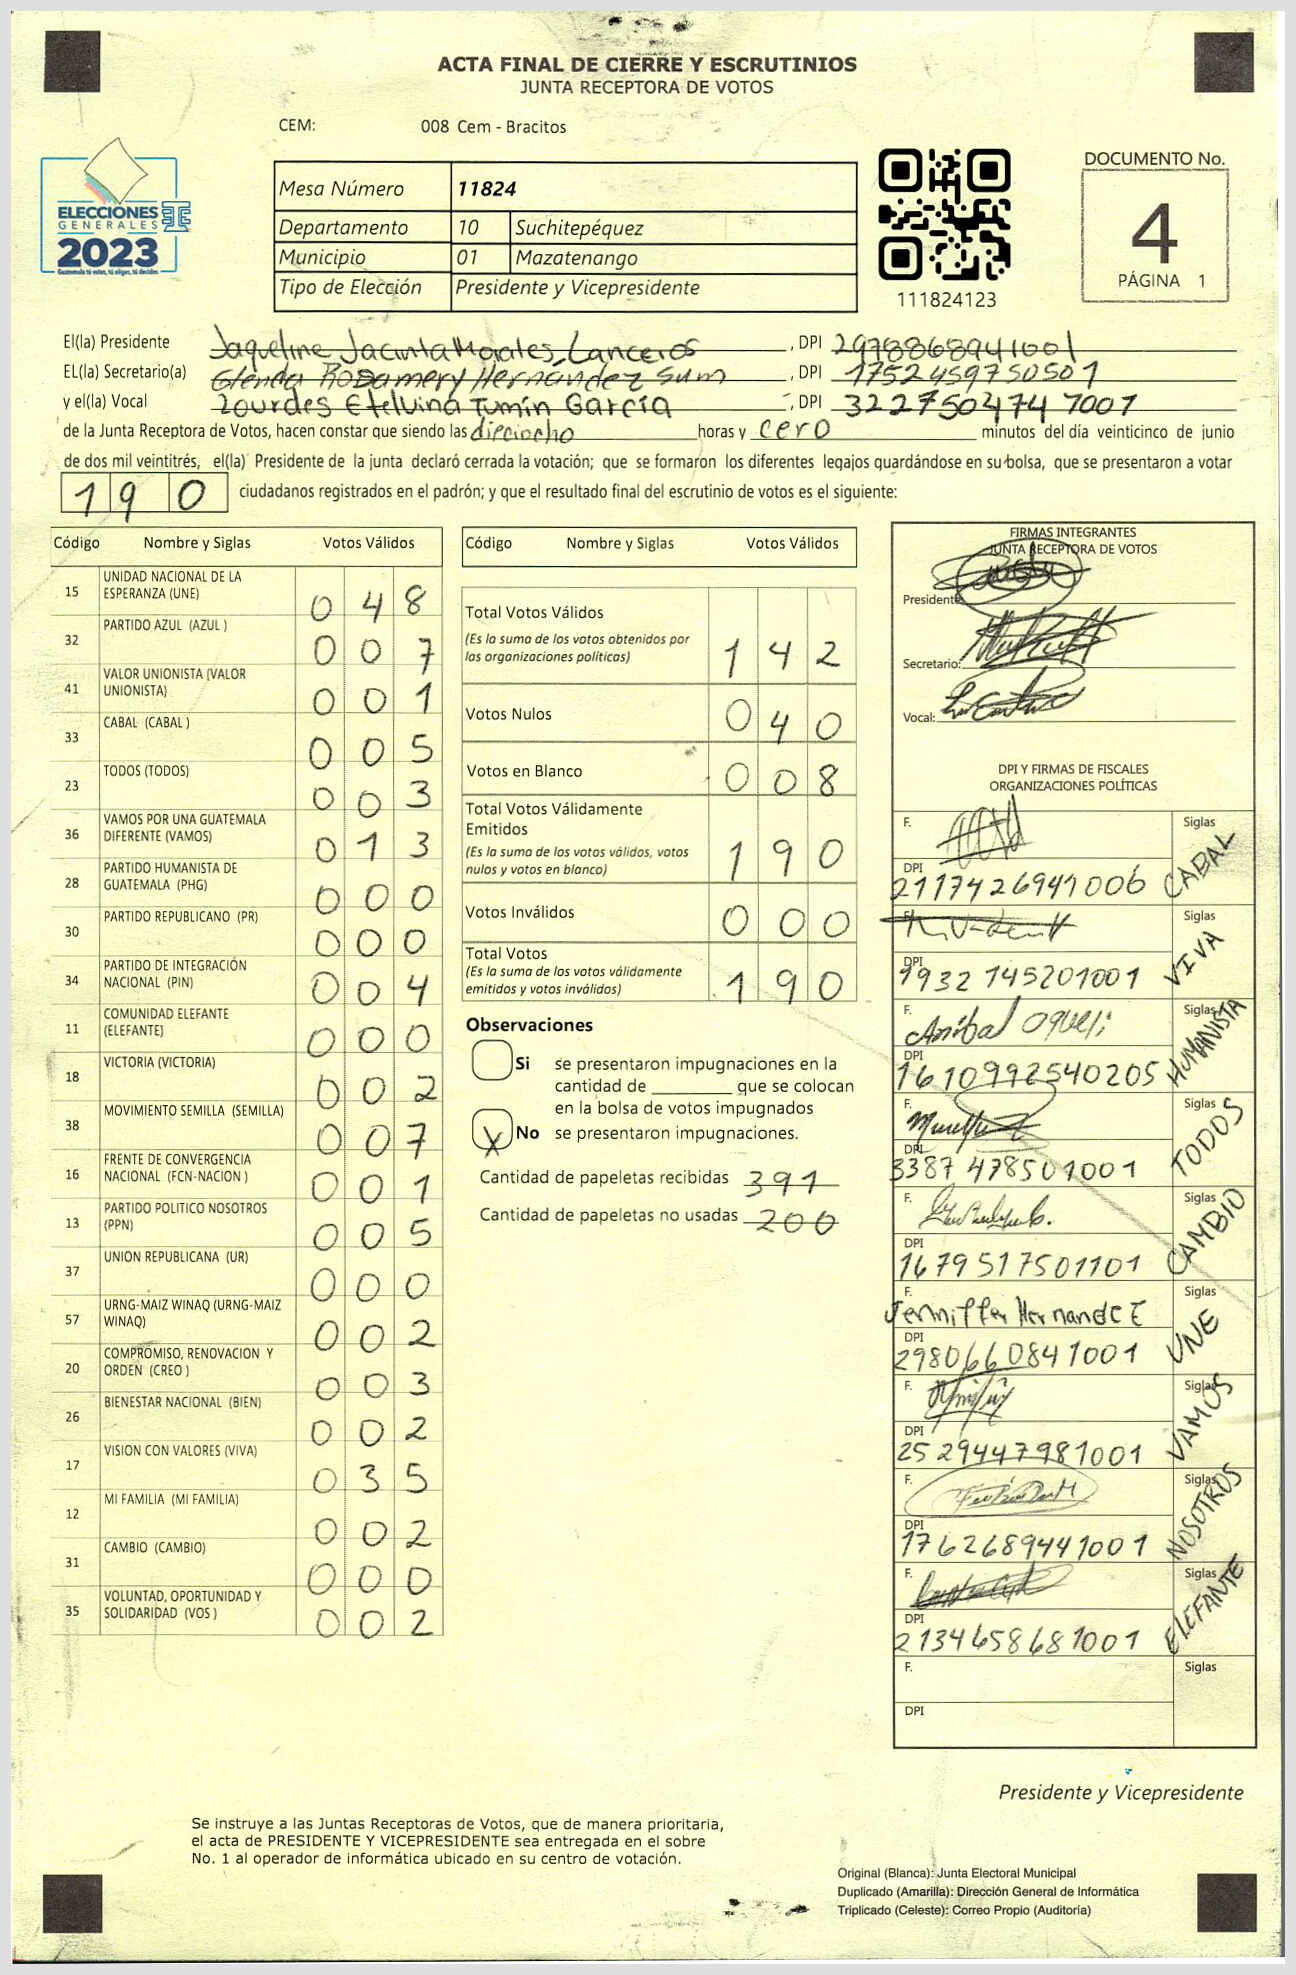 ACTA FINAL DE CIERRE Y ESCRUTINIOS
JUNTA RECEPTORA DE VOTOS
CEM: 008 Cem - Bracitos
ELECCIONES
GENERALES
2023
Guatemala tú votas, tú eliges, tú decides
Mesa Número 11824
Departamento 10 Suchitepéquez
Municipio 01 Mazatenango
Tipo de Elección Presidente y Vicepresidente
111824123
DOCUMENTO No.
4
PÁGINA 1
El(la) Presidente Jaqueline Jacinta Morales Lanceros, DPI 2978868941001
EL(la) Secretario(a) Glenda Rosamery Hernández Sum, DPI 1752459750501
y el(la) Vocal Lourdes Etelvina Tumín García, DPI 3227504747001
de la Junta Receptora de Votos, hacen constar que siendo las dieciocho horas y cero minutos del día veinticinco de junio
de dos mil veintitrés, el(la) Presidente de la junta declaró cerrada la votación; que se formaron los diferentes legajos guardándose en su bolsa, que se presentaron a votar
190 ciudadanos registrados en el padrón; y que el resultado final del escrutinio de votos es el siguiente:
Código Nombre y Siglas Votos Válidos
15 UNIDAD NACIONAL DE LA ESPERANZA (UNE) 048
32 PARTIDO AZUL (AZUL ) 007
41 VALOR UNIONISTA (VALOR UNIONISTA) 001
33 CABAL (CABAL ) 005
23 TODOS (TODOS) 003
36 VAMOS POR UNA GUATEMALA DIFERENTE (VAMOS) 013
28 PARTIDO HUMANISTA DE GUATEMALA (PHG) 000
30 PARTIDO REPUBLICANO (PR) 000
34 PARTIDO DE INTEGRACIÓN NACIONAL (PIN) 004
11 COMUNIDAD ELEFANTE (ELEFANTE) 000
18 VICTORIA (VICTORIA) 002
38 MOVIMIENTO SEMILLA (SEMILLA) 007
16 FRENTE DE CONVERGENCIA NACIONAL (FCN-NACION ) 001
13 PARTIDO POLITICO NOSOTROS (PPN) 005
37 UNION REPUBLICANA (UR) 000
57 URNG-MAIZ WINAQ (URNG-MAIZ WINAQ) 002
20 COMPROMISO, RENOVACION Y ORDEN (CREO ) 003
26 BIENESTAR NACIONAL (BIEN) 002
17 VISION CON VALORES (VIVA) 035
12 MI FAMILIA (MI FAMILIA) 002
31 CAMBIO (CAMBIO) 000
35 VOLUNTAD, OPORTUNIDAD Y SOLIDARIDAD (VOS ) 002
Código Nombre y Siglas Votos Válidos
Total Votos Válidos 142
(Es la suma de los votos obtenidos por
las organizaciones políticas)
Votos Nulos 040
Votos en Blanco 008
Total Votos Válidamente
Emitidos 190
(Es la suma de los votos válidos, votos
nulos y votos en blanco)
Votos Inválidos 000
Total Votos 190
(Es la suma de los votos válidamente
emitidos y votos inválidos)
Observaciones
Si se presentaron impugnaciones en la
cantidad de ________ que se colocan
en la bolsa de votos impugnados
X No se presentaron impugnaciones.
Cantidad de papeletas recibidas 391
Cantidad de papeletas no usadas 200
FIRMAS INTEGRANTES
JUNTA RECEPTORA DE VOTOS
Presidente:
Secretario:
Vocal:
DPI Y FIRMAS DE FISCALES
ORGANIZACIONES POLÍTICAS
F. Siglas CABAL
DPI 2117426941006
F. Siglas VIVA
DPI 1932 145201001
F. Anibal Oqueli Siglas HUMANISTA
DPI 1610992540205
F. Siglas TODOS
DPI 3387 478501001
F. Siglas CAMBIO
DPI 1679517501101
F. Jenniffer Hernandez Siglas UNE
DPI 2980660841001
F. Siglas VAMOS
DPI 2529447981001
F. Siglas NOSOTROS
DPI 1762689441001
F. Siglas ELEFANTE
DPI 2134658681001
F. Siglas
DPI
Presidente y Vicepresidente
Se instruye a las Juntas Receptoras de Votos, que de manera prioritaria,
el acta de PRESIDENTE Y VICEPRESIDENTE sea entregada en el sobre
No. 1 al operador de informática ubicado en su centro de votación.
Original (Blanca): Junta Electoral Municipal
Duplicado (Amarilla): Dirección General de Informática
Triplicado (Celeste): Correo Propio (Auditoría)